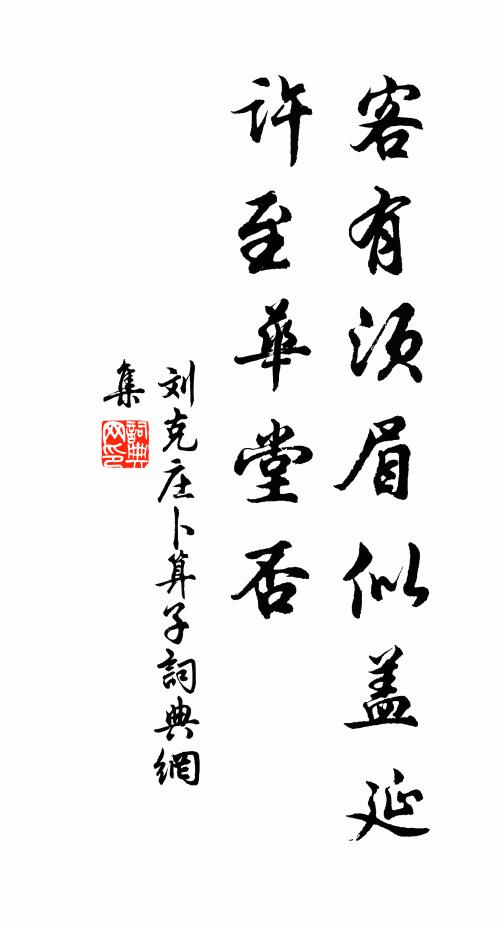 客有须眉似盖延
许至華堂否
刘克庄卜算子詞典網
集
詞典网印